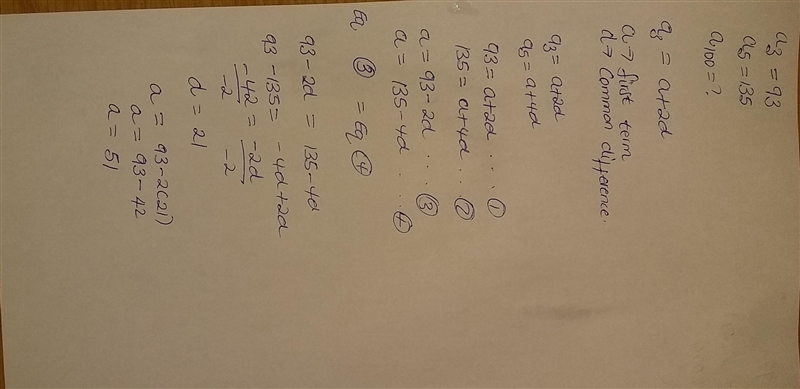 a₃ = 93
a₅ = 135
a₁₀₀ = ?
a₃ = a+2d
a → first term
d → Common difference.
a₃ = a+2d
a₅ = a+4d
93 = a+2d ... ①
135 = a+4d ... ②
a = 93-2d ... ③
a = 135-4d ... ④
Eq ③ = Eq ④
93-2d = 135-4d
93-135 = -4d+2d
-42 = -2d
-2 -2
d = 21
a = 93-2(21)
a = 93-42
a = 51